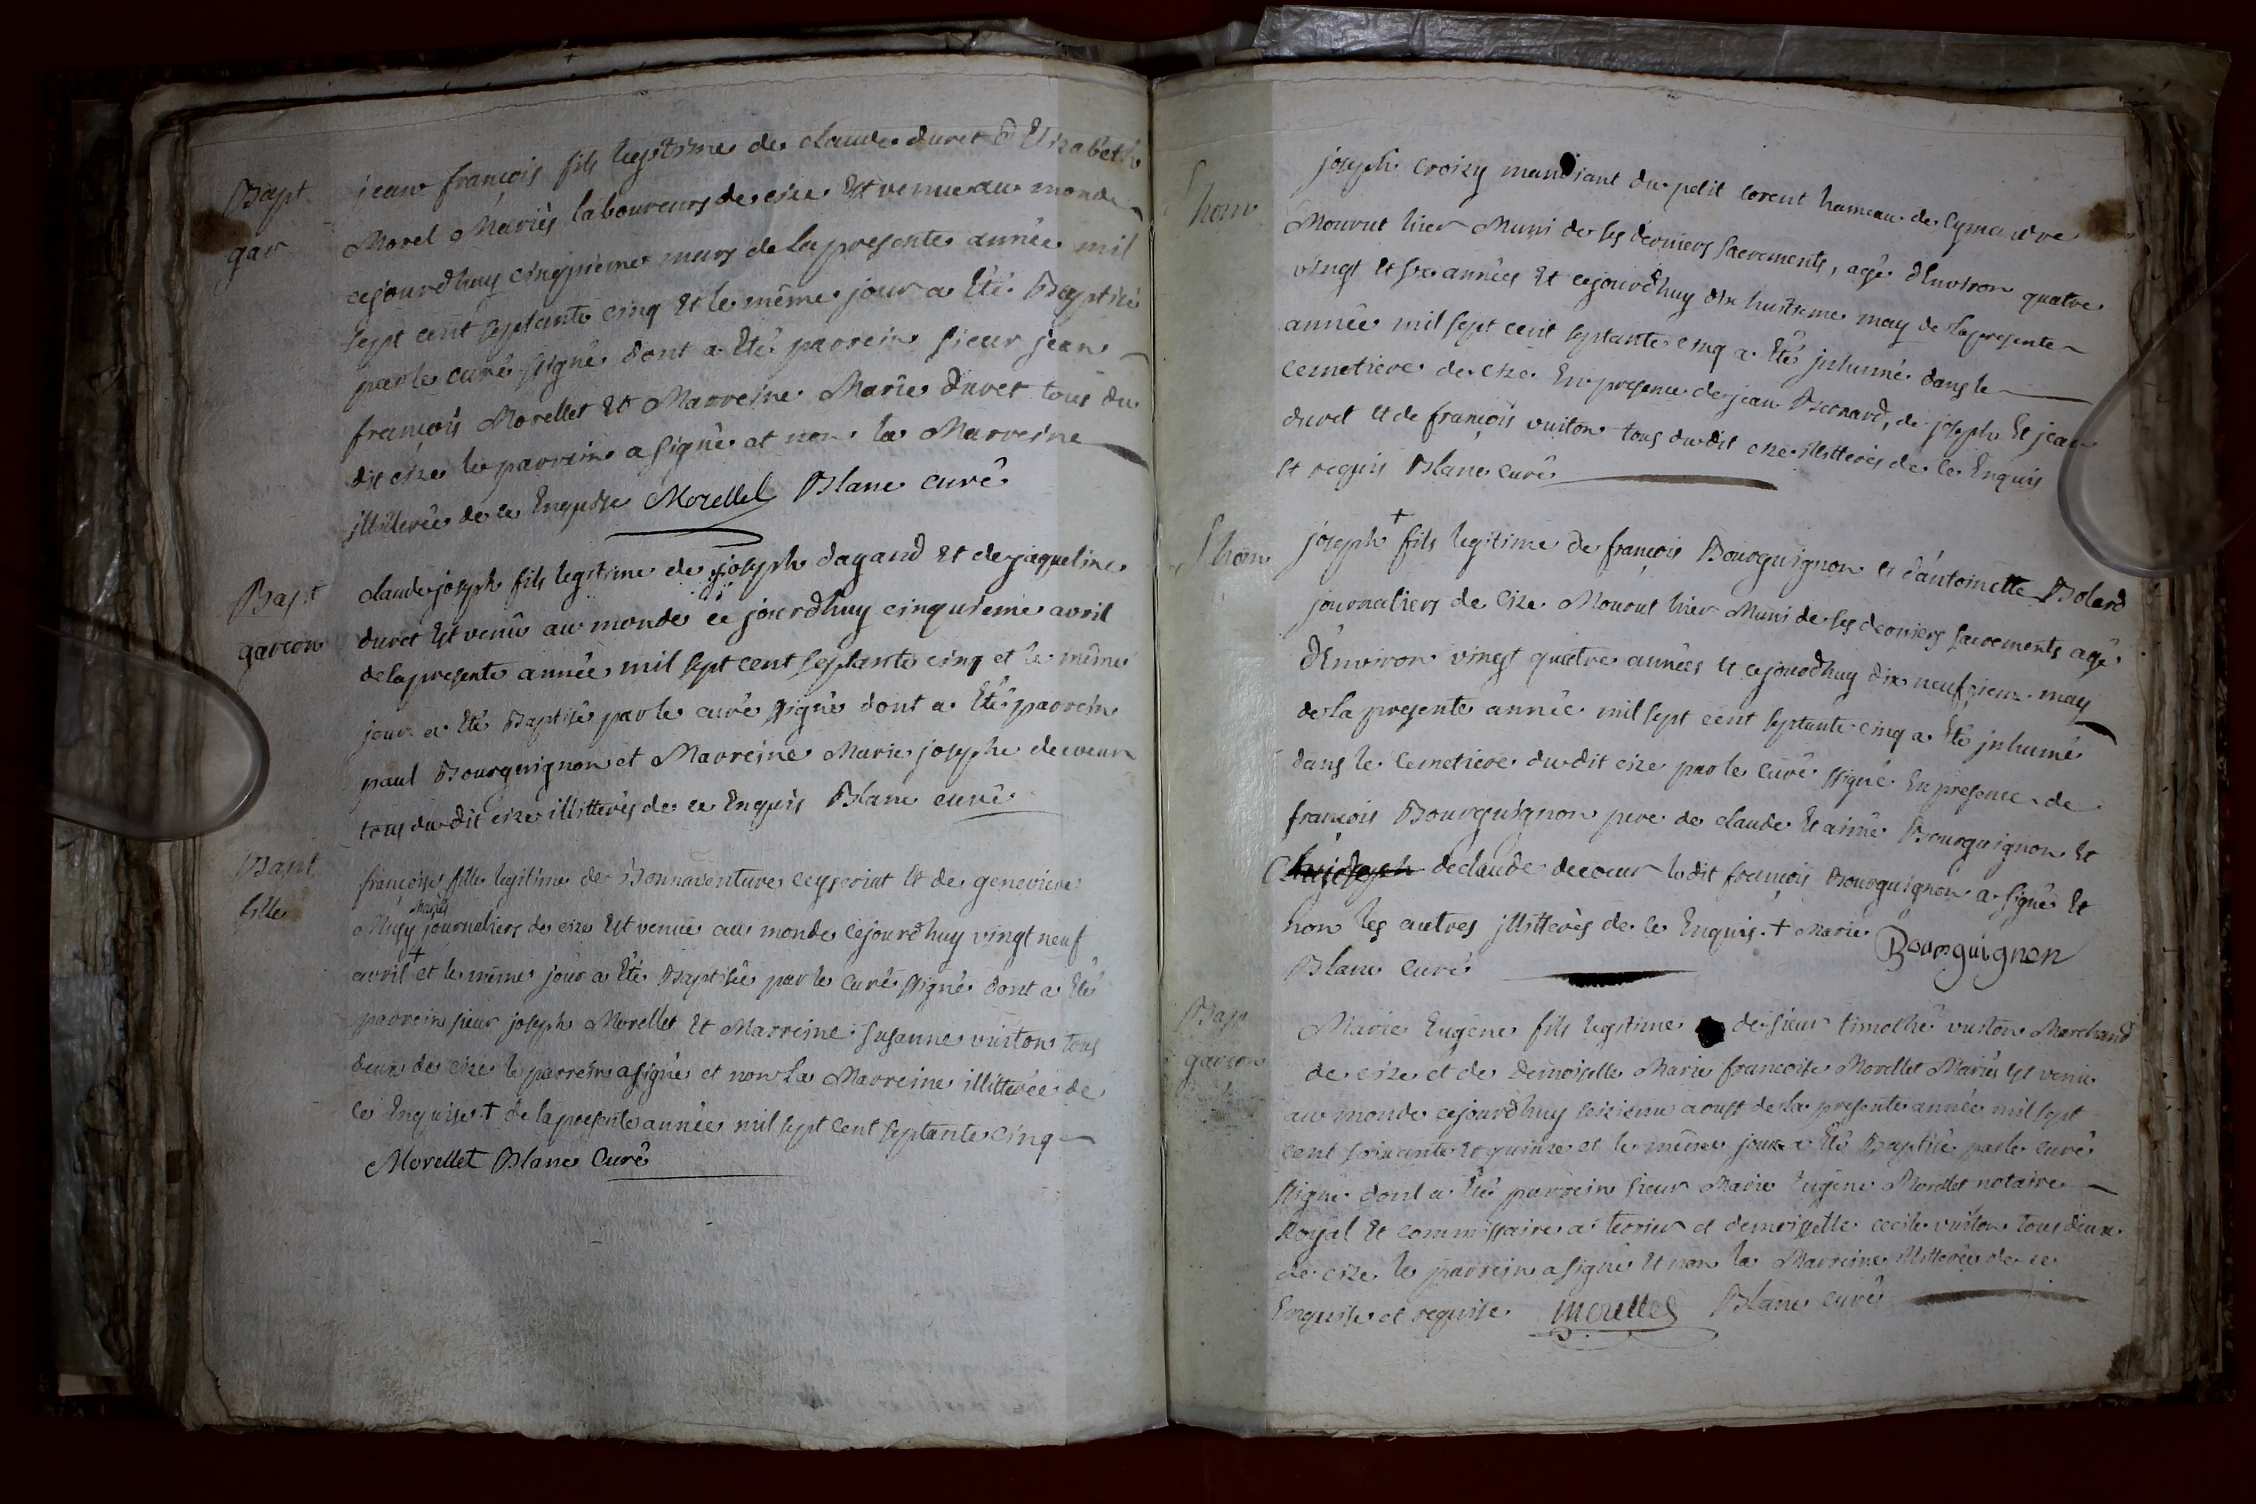 Bapt
gar
jean françois fils legitime de claude duret & Elizabeth
Morel Mariés laboureurs de cize Est venue au monde
cejourdhuy cinqieme mars de la presente année mil
sept cent septante cinq Et le même jour a Eté Baptisé
par le curé ssigné dont a Eté parrein sieur jean
françois Morellet Et Marreine Marie duret tous du
dit cize le parrein a signé et non la Marreine
illitterée de ce Enquise Morellet Blanc curé
Bapt
garcon
claude joseph fils legitime de joseph dagand Et de jaqueline
duret Est venû au monde ce jourdhuy cinquieme avril
de la presente année mil sept cent septante cinq et le même
jour a Eté Baptisé par le curé ssigné dont a Eté parrein
paul Bourguignon et Marreine Marie josephe decoeur
tous dudit cize illitterés de ce Enquis Blanc curé
Bapt
fille
françoise fille legitime de Bonnaventure ceyseriat Et de genevieve
Musy mariés journaliers de cize Est venue au monde cejourdhuy vingt neuf
avril + et le même jour a Eté Baptisée par le curé ssigné dont a Eté
parrein sieur joseph Morellet Et Marreine Susanne vuiton tous
deux de cize le parrein a signé et non la Marreine illitterée de
ce Enquise + de la presente année mil sept cent septante cinq
Morellet Blanc Curé
S hom
joseph Croizy mandiant du petit corent hameau de
Mourut hier Muni de ses derniers sacrements, agé d'Environ quatre
vingt Et six années Et cejourdhuy dix huitieme may de la presente
année mil sept cent septante cinq a Eté jnhumé dans le
cemetiere de cize En presence de jean Bernard, de joseph Et jean
duret Et de françois vuiton tous dudit cize illitterés de ce Enquis
Et requis Blanc curé
S hom
joseph + fils legitime de françois Bourguignon et d'antoinette Bolard
journaliers de Cize Mourut hier Muni de ses derniers sacrements agé
d'Environ vingt quatre années Et cejourdhuy dix neufvieme may
de la presente année mil sept cent septante cinq a Eté jnhumé
dans le Cemetiere dudit cize par le Curé ssigné En presence de
françois Bourguignon pere de claude Et aimé Bourguignon Et
de claude decoeur le dit françois Bourguignon a signé Et
non les autres jllitterés de ce Enquis. + Marie
Bourguignon
Blanc Curé
Bapt
garcon
Marie Eugene fils legitime de sieur timothé vuiton Marchand
de cize et de Demoiselle Marie françoise Morellet Mariés Est venu
au monde cejourdhuy seizieme aoust de la presente année mil sept
cent soixante Et quinze et le même jour a Eté Baptisé par le curé
ssigné dont a Eté parrein sieur Marie Eugene Morellet notaire
Royal Et commissaire a terrier et demoiselle cecile vuiton tous deux
de cize le parrein a signé Et non la Marreine illitterée de ce
Enquise et requise Morellet Blanc curé